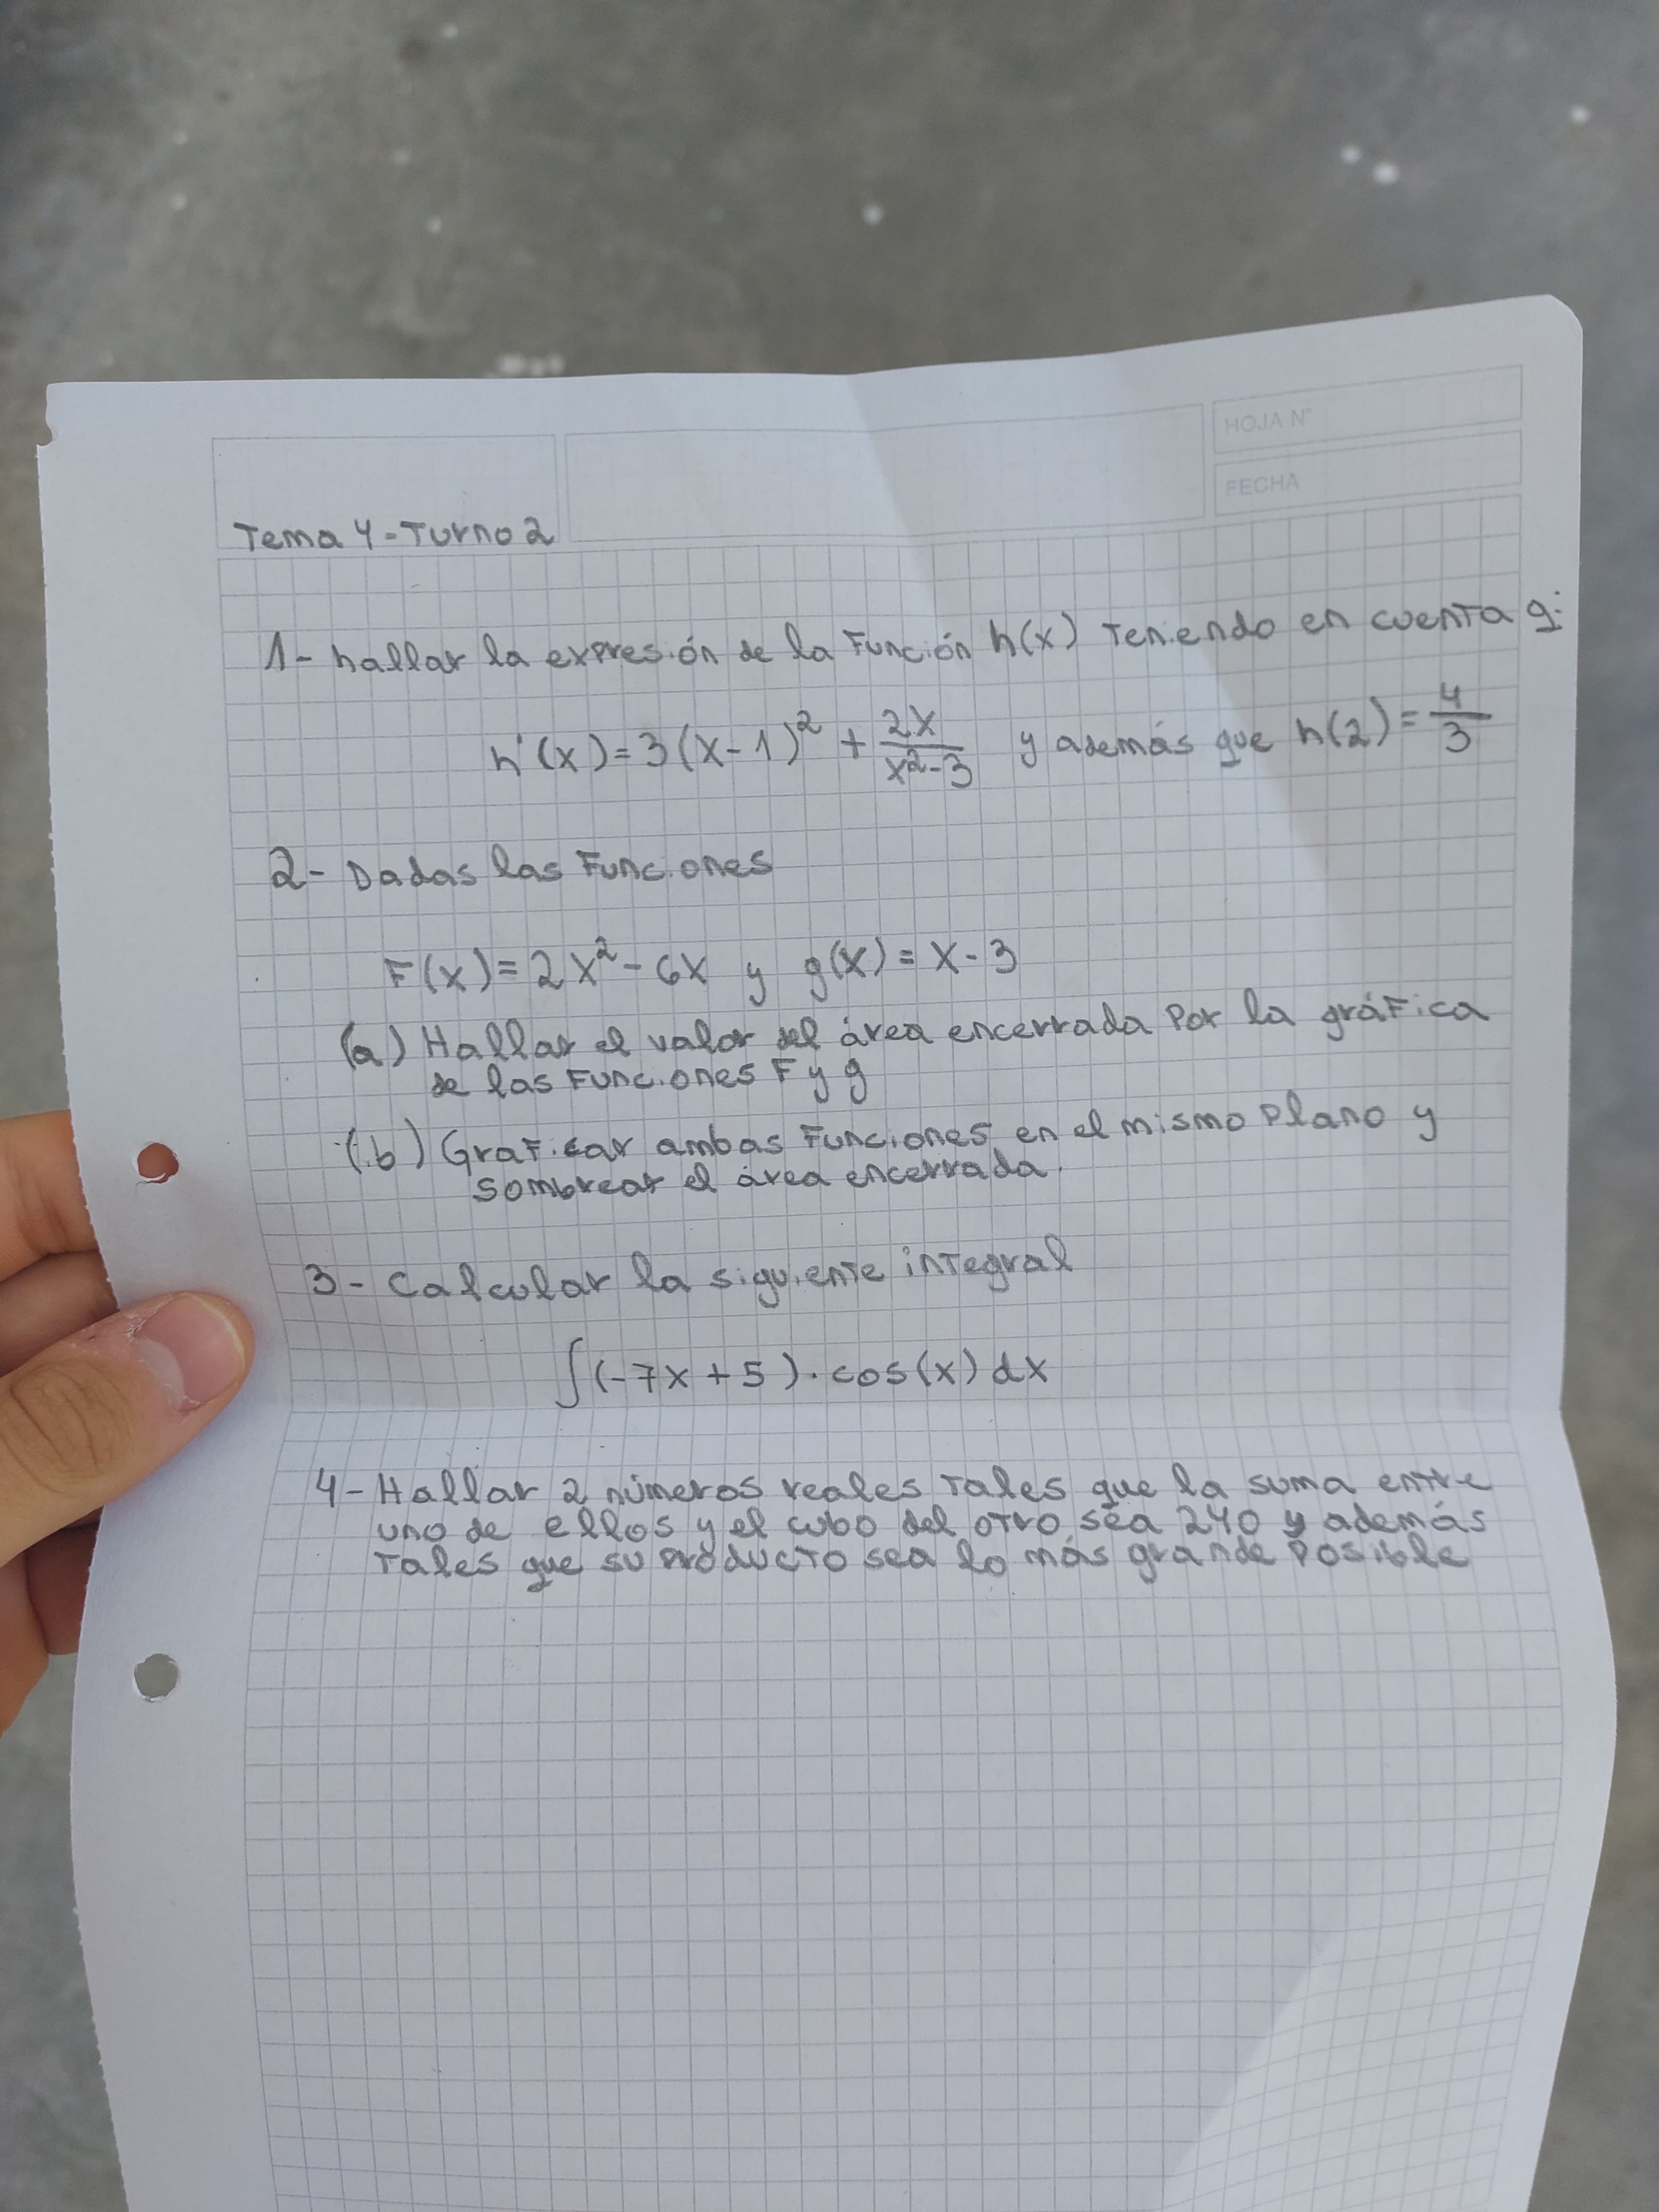 HOJA N°
FECHA
Tema 4-Turno 2
1- hallar la expresión de la Función h(x) Teniendo en cuenta q:
h'(x)=3(x-1)² + 2x/(x²-3) y además que h(2)=4/3
2- Dadas las Funciones
F(x)=2x²-6x y g(x)=x-3
(a) Hallar el valor del área encerrada por la gráfica
de las Funciones F y g
(b) Graficar ambas Funciones en el mismo plano y
sombrear el área encerrada.
3- Calcular la siguiente integral
∫(-7x+5).cos(x)dx
4- Hallar 2 números reales tales que la suma entre
uno de ellos y el cubo del otro sea 240 y además
Tales que su producto sea lo más grande posible